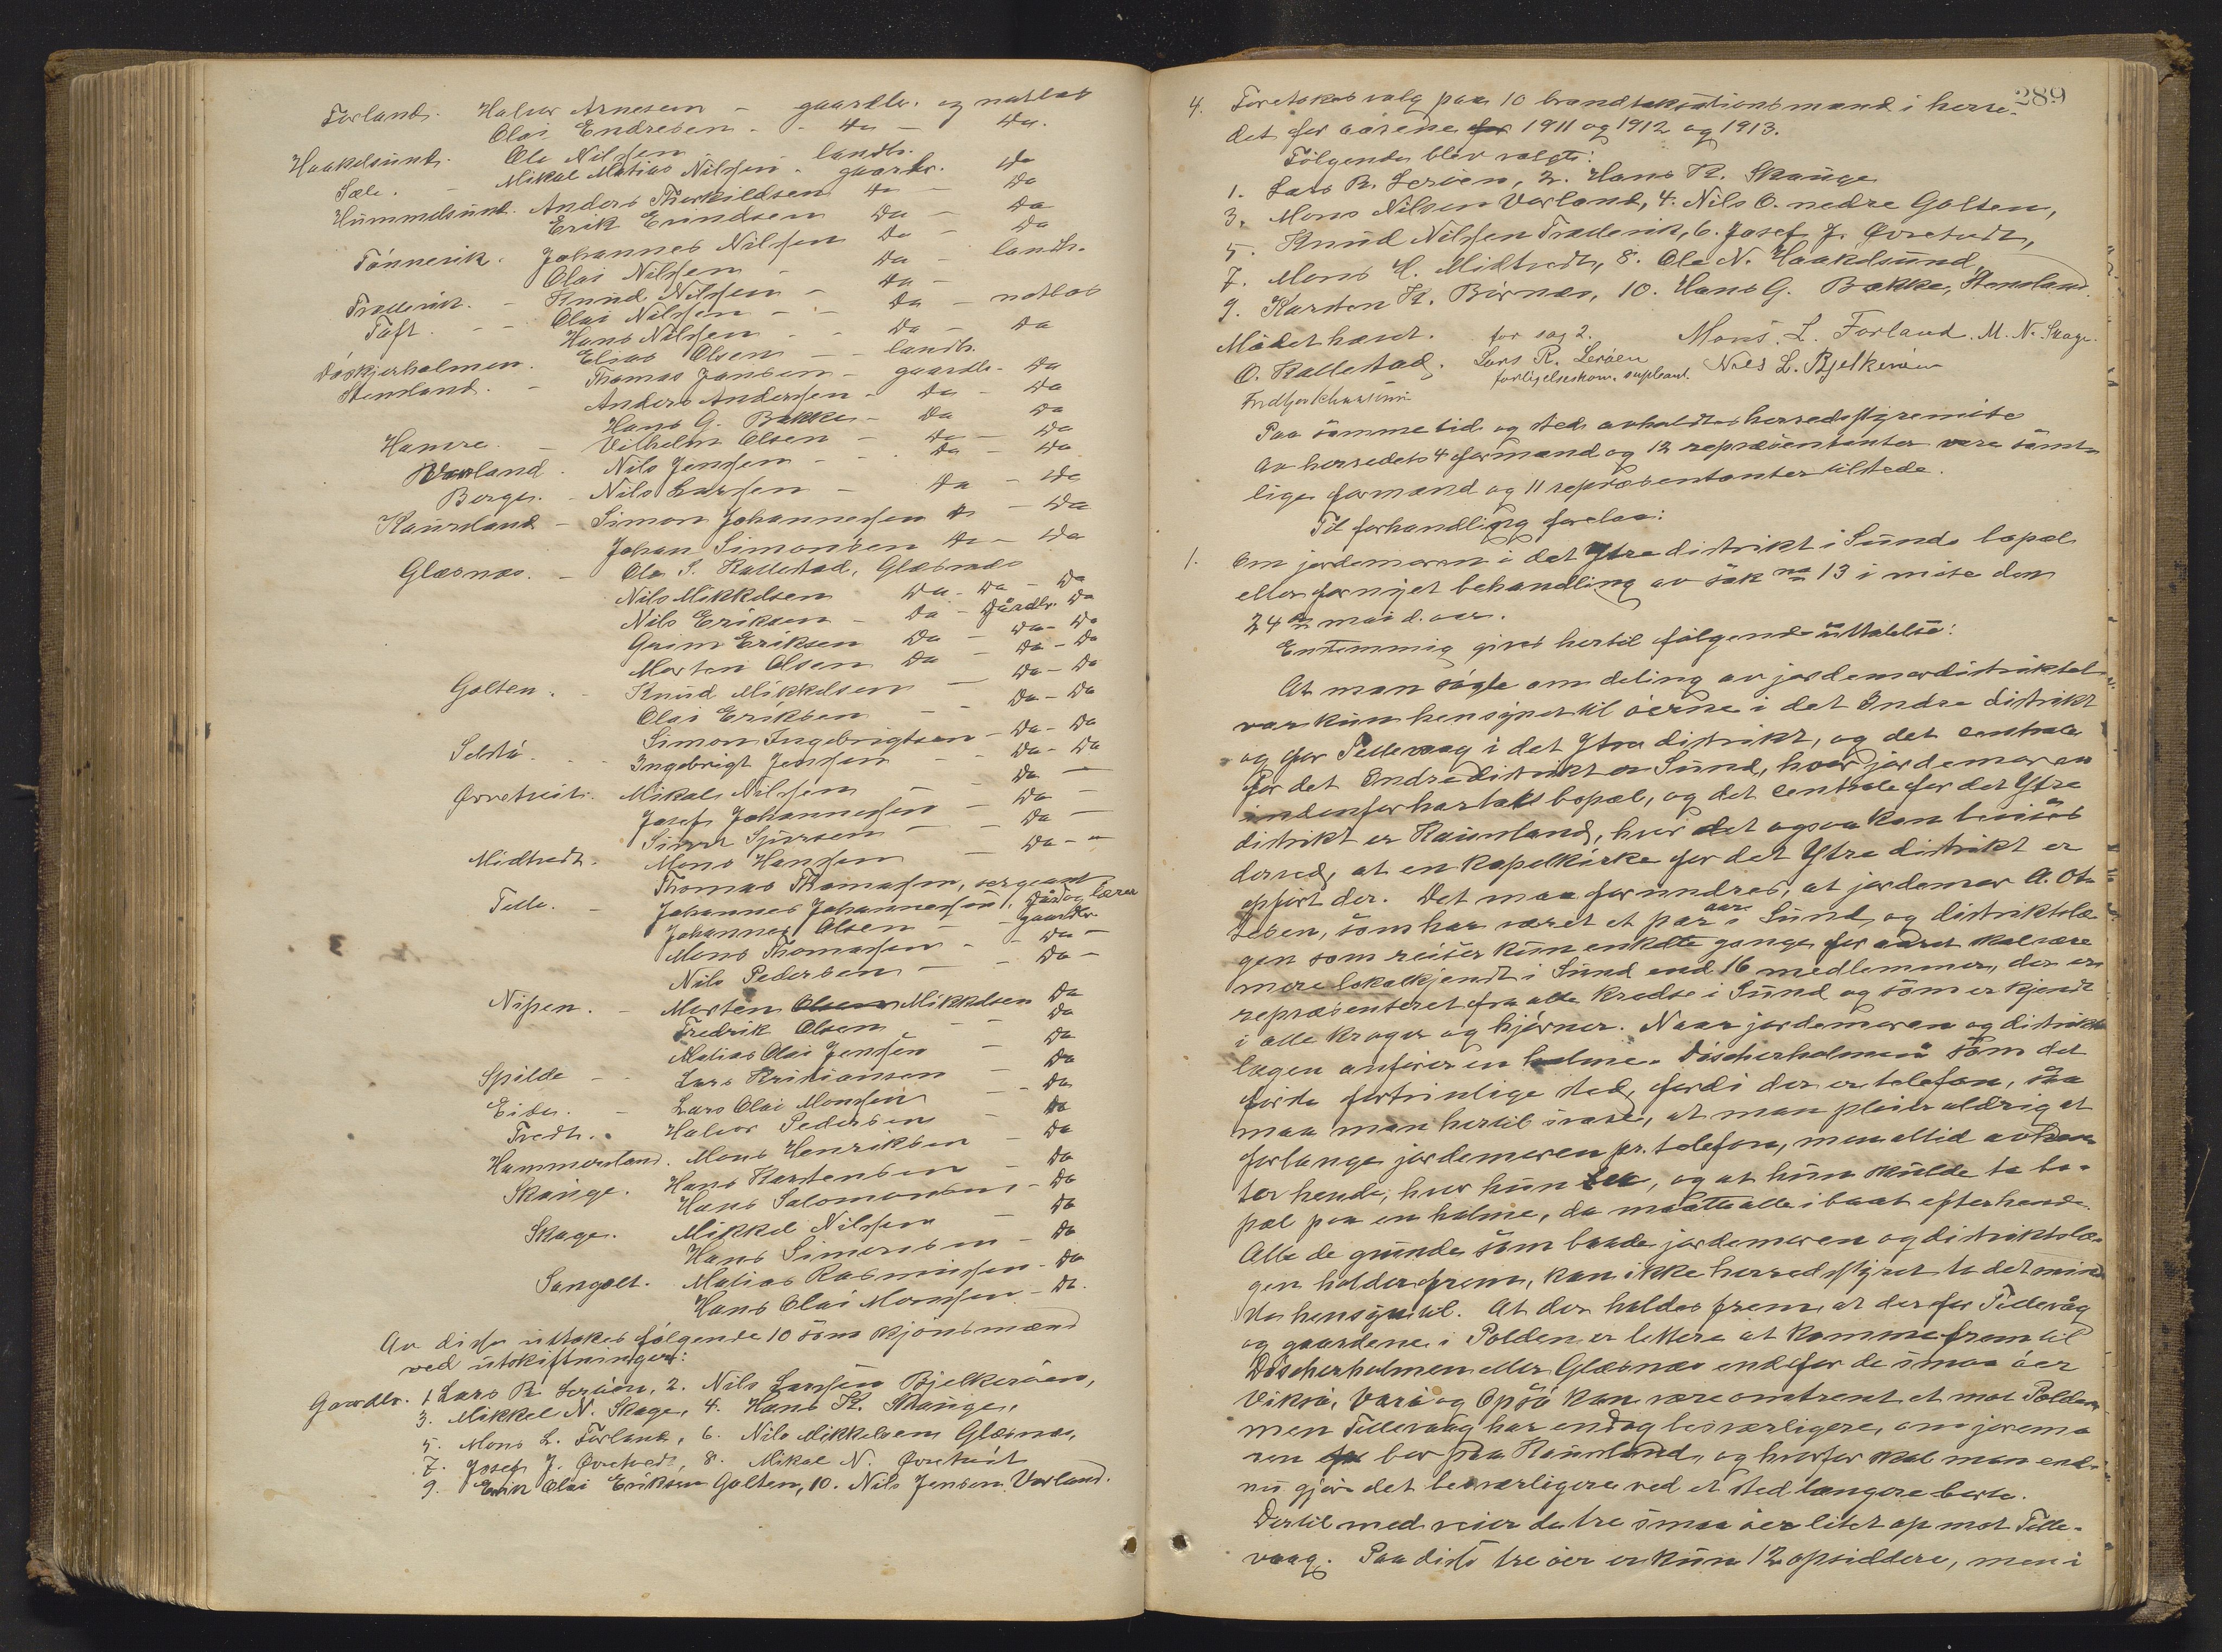 Forland. Halvor Arnesen - gaardbr. og notbas
Olai Endresen - Do - Do.
Haakelsund. Ole Nilssen - landb.
Sæle. - Mikal Matias Nilssen - gaardbr. Do
Hummelsund. Anders Therkildsen Do - Do
Erik Erindsen Do - Do
Tönnevik. Johannes Nilssen Do - Do
Olai Nilssen - Do - landb.
Trællevik. - Knud Nilssen - Do -
Toft. - - Olai Nilssen - - Do - notbas
Hans Nilssen - Do - Do
Döskjerholmen. Elias Olsen - - landb.
Steinsland. - Thomas Jansen - gaardbr. - Do
Anders Anderssen - Do - Do
Hans G. Bakke - Do Do
Hamre. - Vilhelm Olsen - Do - Do
Vorland. Nils Jenssen - - Do - Do
Berge. - Nils Larssen - Do - Do
Kausland - Simon Johannessen Do - Do
Johan Simonsen Do - Do
Glæsnæs. - Ole S. Kallestad, Glæsnæs
Nils Mikkelsen Do - Do - Do
Nils Eriksen - Do - Gårdbr. Do
Grim Eriksen Do - Do - Do
Morten Olsen Do - Do - Do
Golten. - Knud Mikkelsen - Do - Do
Olai Eriksen - - Do - Do
Simon Ingebrigtsen - Do - Do
Selstö. - - Ingebrigt Jenssen - - Do - Do
Øvretveit. Mikal Nilssen - - Do -
Josef Johannessen - Do -
Simon Sjursen - - Do -
Midttvedt. Mons Hanssen - Do - -
Thomas Thomassen, sergeant
Telle. - Johannes Johannessen, Gård og lærer
Johannes Olsen - - gaardbr.
Mons Thomassen - - Do -
Nils Pedersen - - Do -
Nipen. - Morten Olsen Mikkelsen Do
Fredrik Olsen - - Do
Matias Olai Jenssen - Do
Spilde - - Lars Kristiansen - Do
Eide. - Lars Olai Monssen - - Do
Tvedt. Halvor Pedersen - Do
Hammersland. Mons Henriksen - Do
Skauge. Hans Karstensen - Do
Hans Salomonsen - Do
Skage. Mikkel Nilssen - Do
Hans Simonsen - Do
Sangolt. Matias Rasmussen - Do
Hans Olai Monssen - Do.
Av disse uttokes følgende 10 som skjönsmænd
ved utskiftninger:
Gaardbr. 1 Lars R. Leröen, 2. Nils Larssen Bjelkeröen,
3. Mikkel N. Skage, 4. Hans K. Skauge,
5. Mons L. Forland, 6. Nils Mikkelsen Glæsnæs,
7. Josef J. Øvretvedt, 8. Mikal N. Øvretveit
9. Erik Olai Eriksen Golten, 10. Nils Jensen Vorland.
289
4. Foretokes valg paa 10 brandtakstionsmænd i herre-
det for aarene for 1911 og 1912 og 1913.
Följende blev valgte:
1. Lars R. Leröen, 2. Hans K. Skauge
3. Mons Nilsen Vorland, 4. Nils O. nedre Golten,
5. Knud Nilssen Trællevik, 6. Josef J. Øvretvedt,
7. Mons H. Midttvedt, 8. Ole N. Haakelsund,
9. Karsten K. Börnæs, 10. Hans G. Bakke, Steinsland.
Mödet hævet. for sag 2. Mons. L. Forland. M. N. Skage.
O. Kallestad. Lars R. Leröen Nils L. Bjelkeröen
forligelseskom. supleant.
Paa samme tid og sted avholdtes herredsstyremöte
Av herredets 4 formænd og 12 repræsentanter vare samt-
lige formænd og 11 repræsentanter tilstede.
Til forhandling forelaa:
1. Om jordemoren i det Ytre distrikt i Sunds bopæl
eller fornyet behandling av sak no 13 i möte den
24de mai d. aar.
Enstemmig gives hertil fölgende uttalelse:
At man sögte om deling av jordemordistriktet
var kun hensynet til öerne i det Indre distrikt
og for Tellevaag i det Ytre distrikt, og det centrale
for det Indre distrikt er Sund, hvor jordemoren
indenfor har tat bopæl, og det centrale for det Ytre
distrikt er Kausland, hvor det ogsaa kan bevises
derved, at en kapelkirke for det Ytre distrikt er
opfört der. Det maa forundres, at jordemor A. Ot-
tesen, som har været et par aar i Sund, og distriktslæ-
gen som reiser kun enkelte gange for aaret skal være
mere lokalkjendt i Sund end 16 medlemmer, der er
repræsenteret fra alle kredse i Sund og som er kjendt
i alle kroger og hjörner. Naar jordemoren og distrikts-
lægen anförer en holme Döskjerholmen som det
förste fortrinlige sted, fordi der er telefon, saa
maa man hertil svare, at man pleier aldrig at
forlange jordemoren pr. telefon, men altid avhen-
ter hende, hvor hun er, og at hun skulde ta bo-
pæl paa en holme, da maatte alle i baat efter hende.
Alle de grunde som baade jordemoren og distriktslæ-
gen holder frem, kan ikke herredsstyret ta det mind-
ste hensyn til. At der holdes frem at der for Tellevåg
og gaardene i Polden er lettere at komme frem til
Döskjerholmen eller Glæsnæs end for de smaa öer
Viksö, Vorö og Opsö kan være omtrent et mot Polden
men Tellevaag har endog besværligere, om joremo
ren for bor paa Kausland, og hvorfor skal man end-
nu gjöre det besværligere ved et sted længere borte.
Dertil med veier de tre smaa öer litet op mot Telle-
vaag. Paa disse tre öer er kun 12 opsiddere, men i